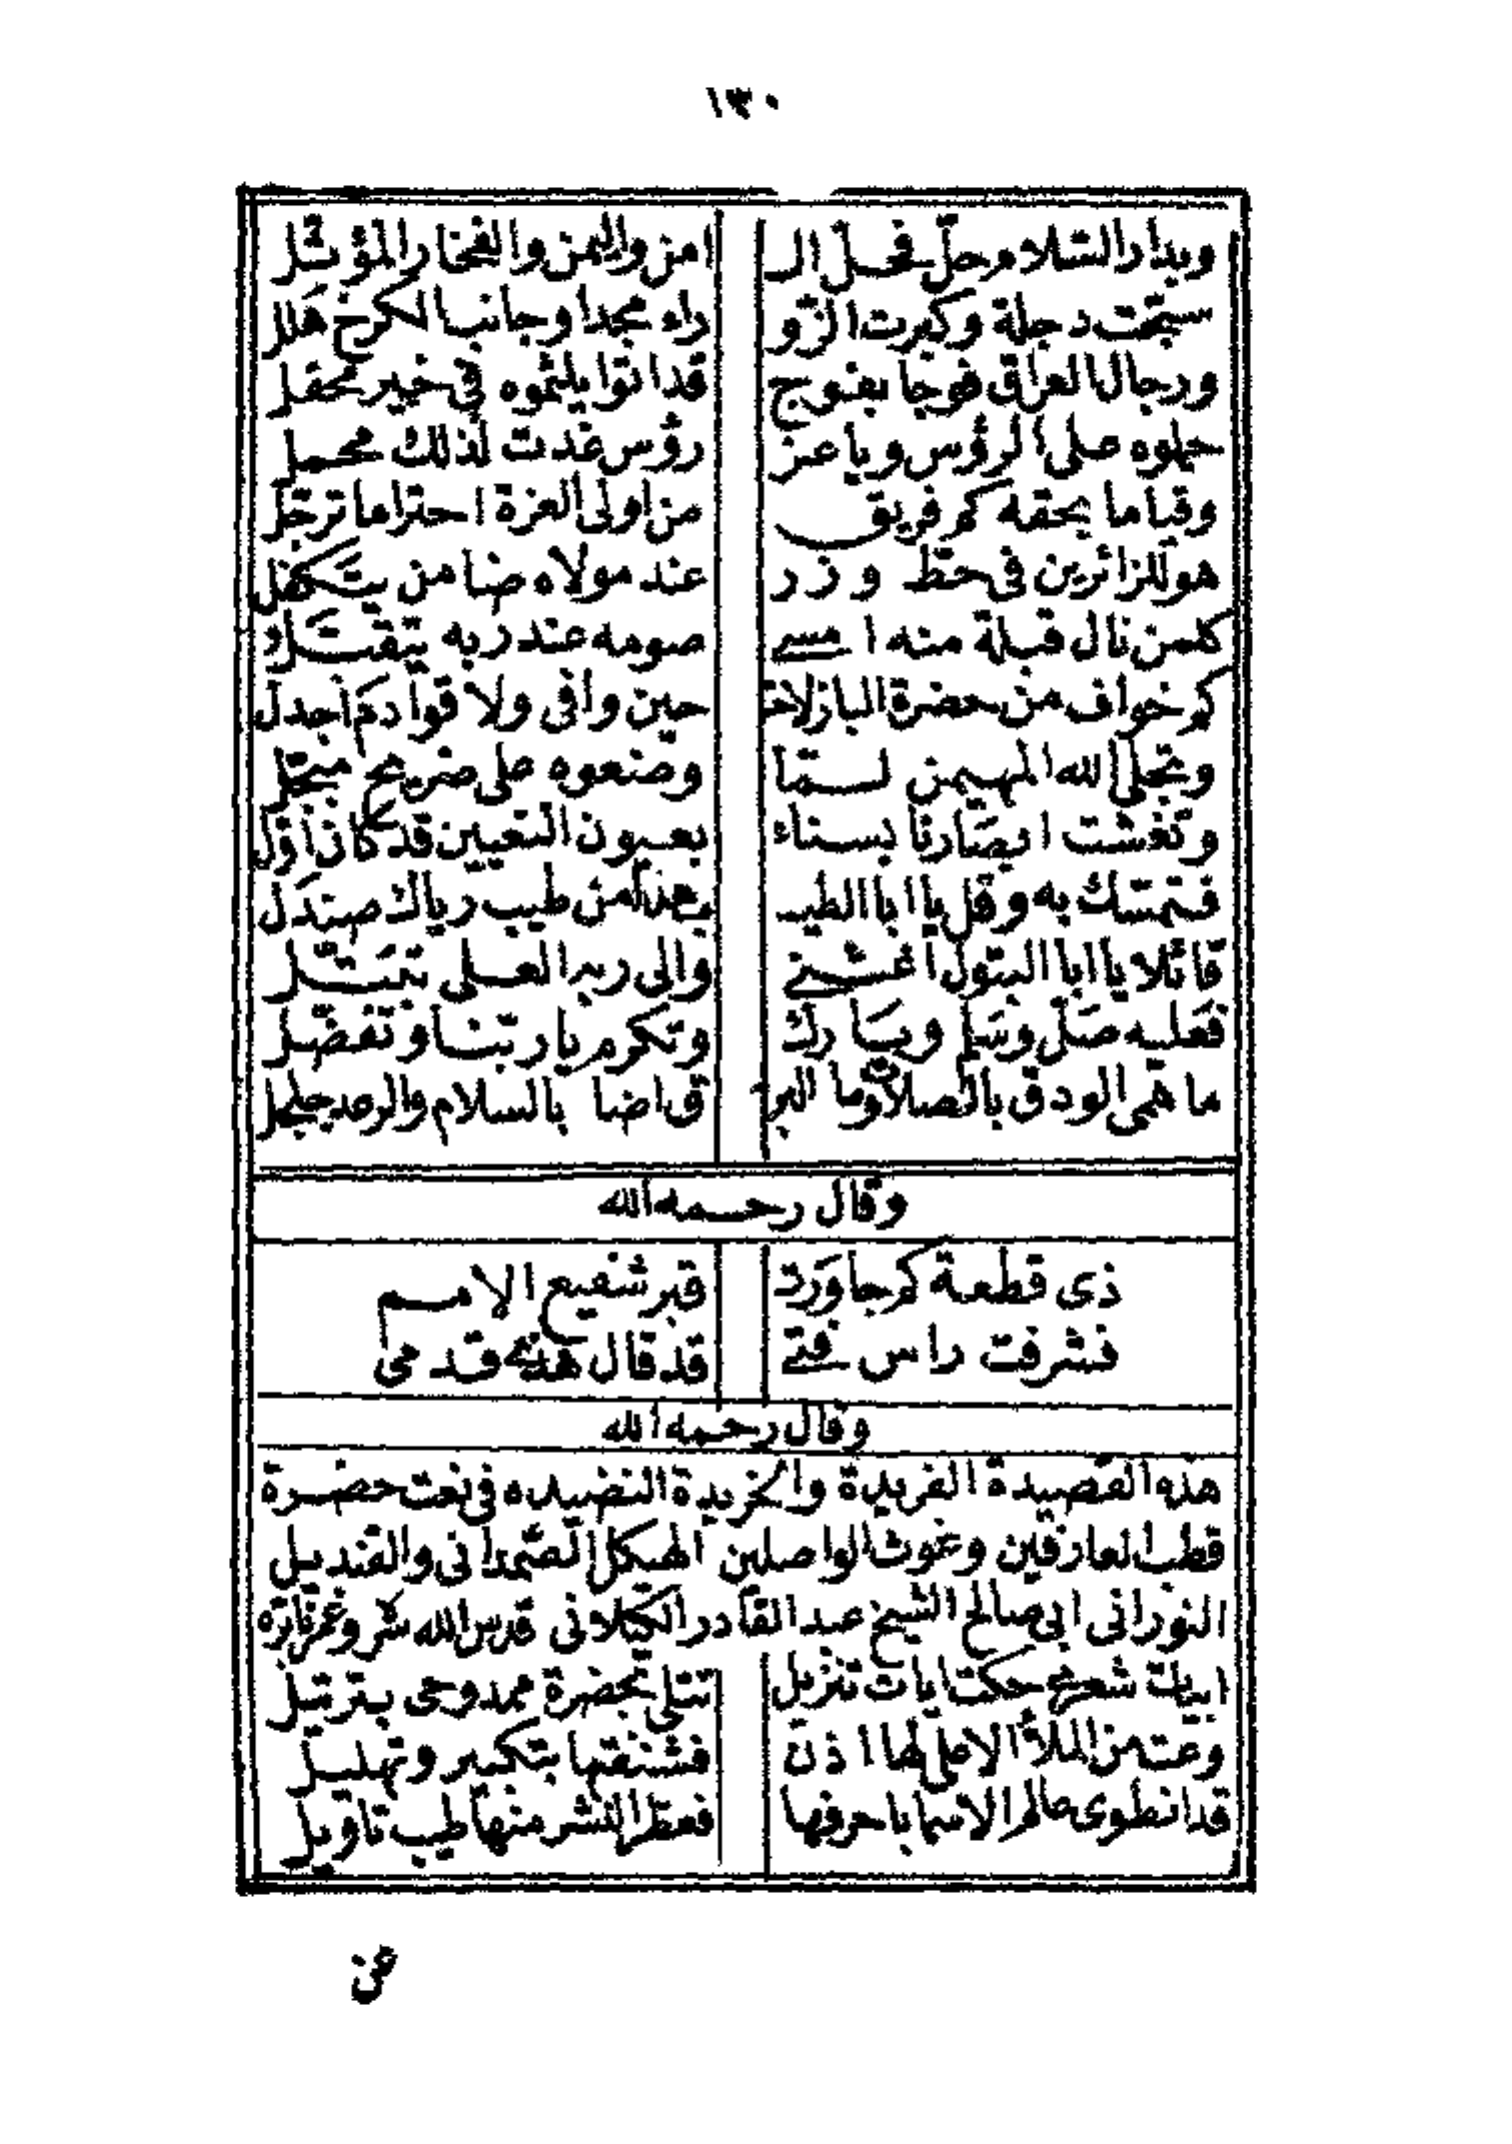 ١٣٠
وبدار السّلام حلّ فحلّ الـ امن واليمن والفخار المؤثّل
سبّحت دجلة وكبرت الزّو راء مجدا وجانب الكرخ هَلل
ورجال العراق فوجا بفوج قد اتوا يلثموه في خير محفل
حملوه على الرؤس ويا عز رؤس غدت لذلك محمل
وقياما بحقه كم فريق من اولى العزة احتراما ترجّل
هو للزائرين في حطّ وزر عند مولاه ضامن يتَكفل
كلمن نال قبلة منه امسى صومه عند ربه يتقَبّل
كم خواف من حضرة الباز لاحت حين وافى ولا قوادمَ اجدل
وتجلى الله المهيمن لمّا وضعوه على ضريح مبجّل
وتغشت ابصارنا بسناء بعيون التعيين قد كان اوّل
فتمسّك به وقل يا ابا الطيب هذا من طيب رياك صندَل
قائلا يا ابا البتول اغثني والى ربه العلى تمثّل
فعليه صَلّ وسَلم وبَارك وتكرم يا ربّنا وتفضّل
ما همى الودق بالصلاة وما البر ق اضا بالسلام والرعد جلجل
وقال رحمه الله
ذى قطعة كم جاوَرت قبر شفيع الامم
فشرفت راس فتى قد قال هذى قدمى
وقال رحمه الله
هذه القصيدة الفريدة والخريدة النضيده في نعت حضرة
قطب العارفين وغوث الواصلين الهيكل الصّمدانى والقنديل
النورانى ابى صالح الشيخ عبد القادر الكيلانى قدس الله سره وغمرنا بره
ابيات شعرى حكت ايات تنزيل تتلى بحضرة ممدوحى بترتيل
وعت من الملأ الاعلى لها اذن فشنفتها بتكبير وتهليل
قد انطوى عالم الاسما باحرفها فعطر النشر منها طيب تاويل
عن